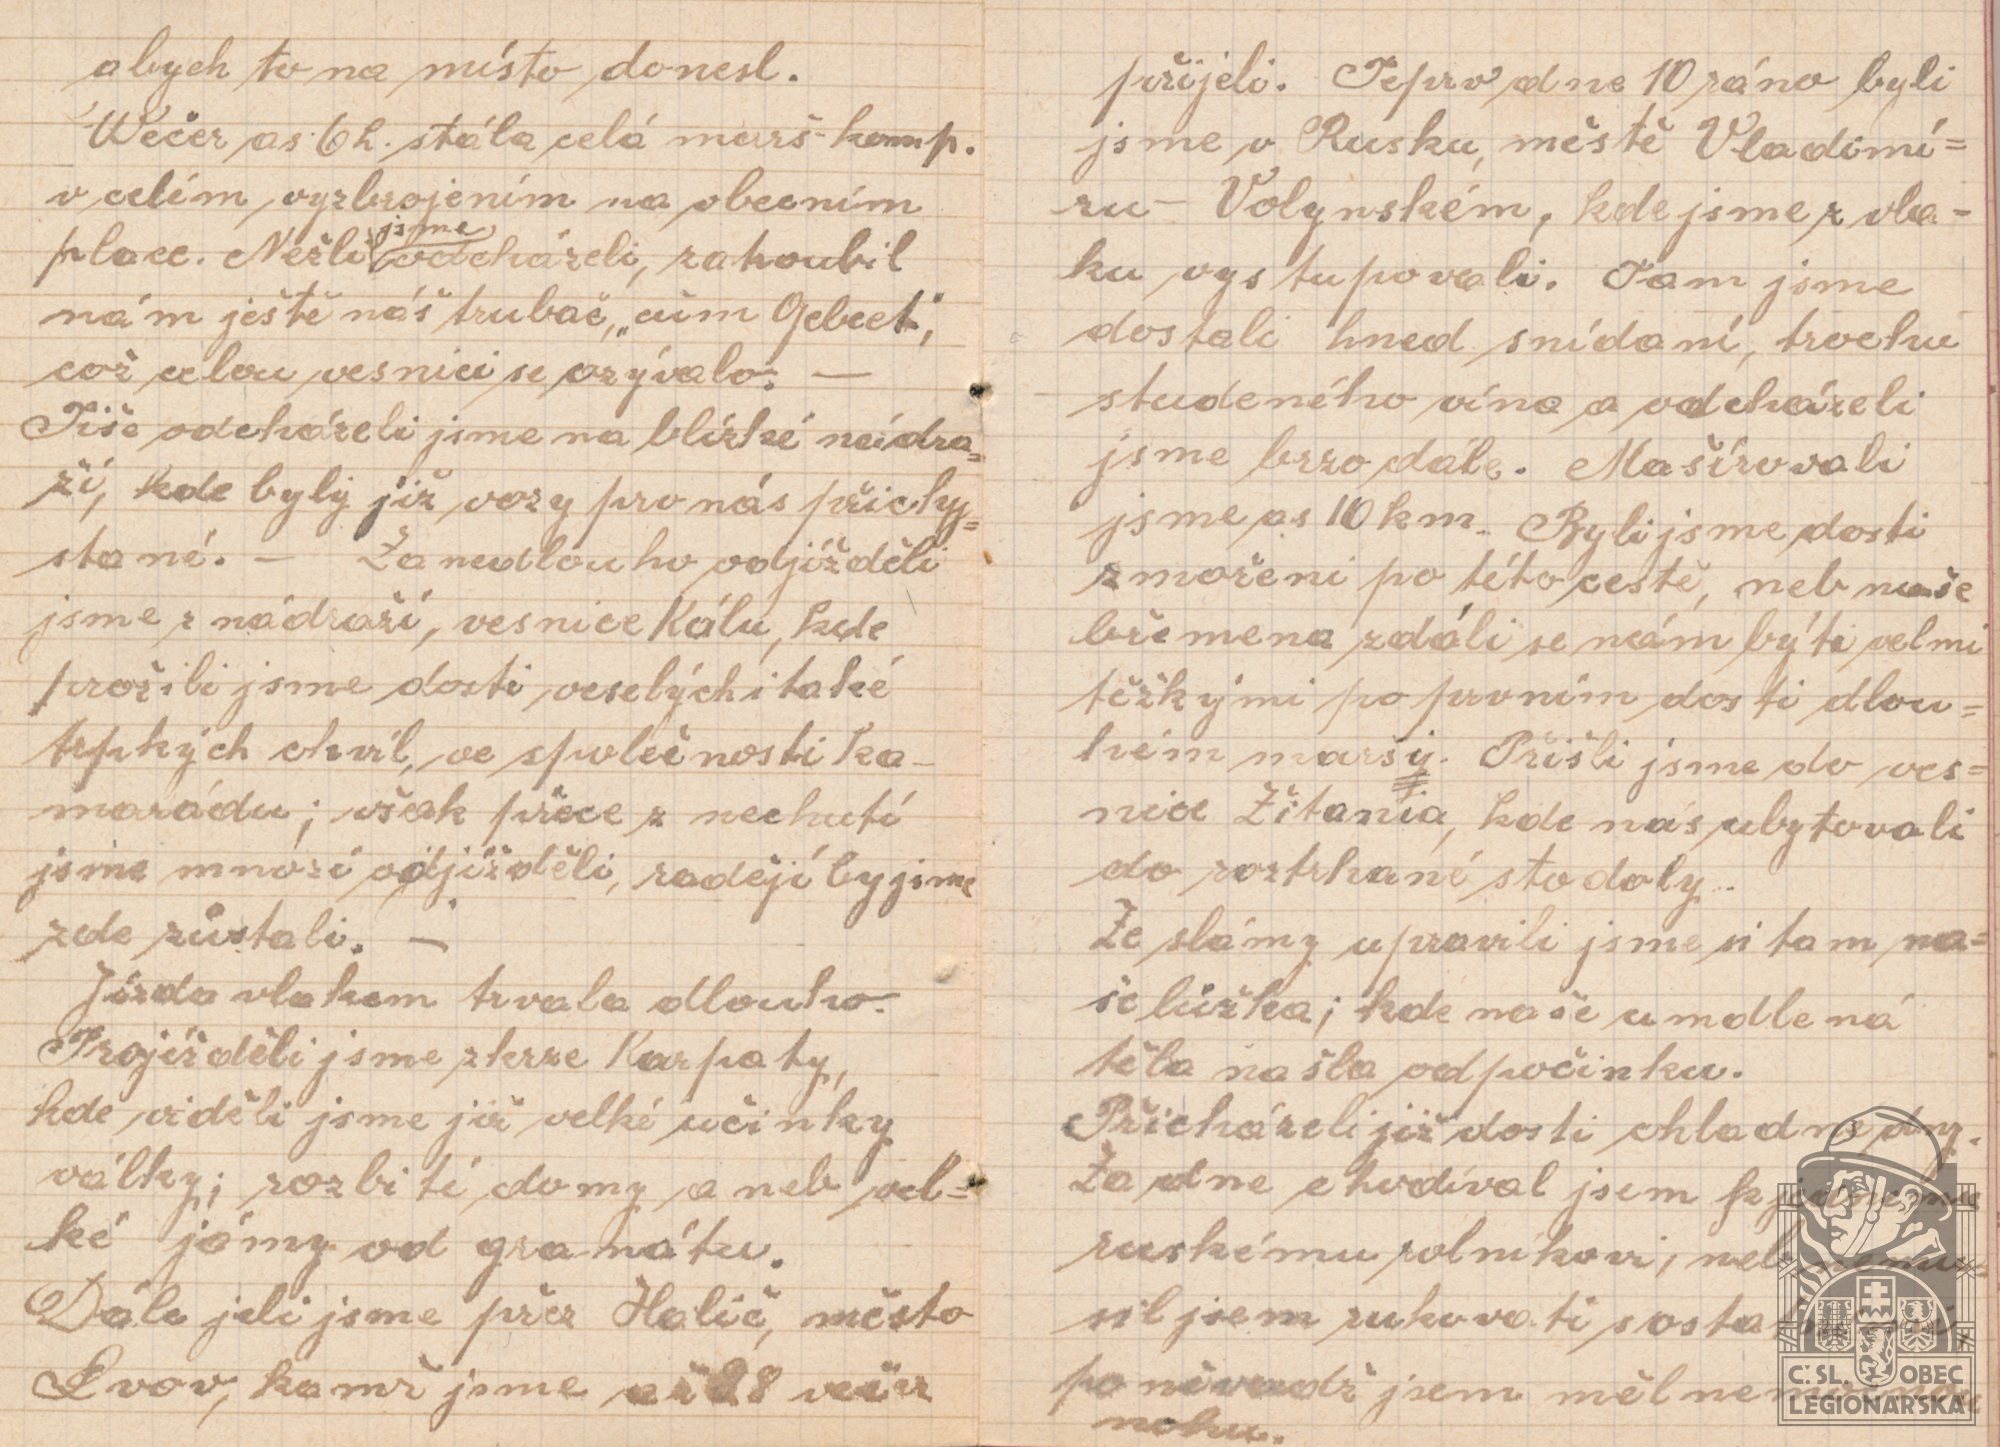 abych to na místo donesl.
Večer as 6h. stála celá marš-komp.
v celím vyzbrojením na obecním
place. Nežli jsme odcházeli, zatoubil
nám ještě náš trubač, „cum Gebeet",
což celou vesnici se ozývalo. —
Tiše odcházeli jsme na blízké nádra=
ží, kde byly již vozy pro nás přichy=
stané. — Zanedlouho odjížděli
jsme z nádraží, vesnice Kálu, kde
prožili jsme dosti veselých i také
trpkých chvil, ve společnosti ka-
marádu; však přece z nechutí
jsme mnozí odjížděli, raději by jsme
zde zůstali. —
Jízda vlakem trvala dlouho.
Projížděli jsme zkrze Karpaty,
kde viděli jsme již velké učinky
války; rozbité domy a neb vel=
ké jámy od granátu.
Dále jeli jsme přez Halič, město
Lvov, kamž jsme až 28 večer
přijeli. Teprv dne 10 ráno byli
jsme v Rusku, městě Vladimí=
ru- Volynském, kde jsme z vla-
ku vystupovali. Tam jsme
dostali hned snídaní, trochu
studeného vína a odcházeli
jsme brzo dále. Mašírovali
jsme as 10 km. Byli jsme dosti
zmořeni po této cestě, neb naše
břemena zdáli se nám býti velmi
těžkými po prvním dosti dlou=
hém marši. Přišli jsme do ves=
nice Žitania, kde nás ubytovali
do roztrhané stodoly.
Ze slámy upravili jsme si tam na=
še lůžka; kde naše umdlená
těla našla odpočinku.
Přicházeli již dosti chladné dny.
Za dne chodíval jsem k jednomu
ruskému rolníkovi, neb nemu=
sil jsem rukovati s ostatními,
poněvadž jsem měl nemocnou
nohu.
Č.SL. OBEC
LEGIONÁŘSKÁ